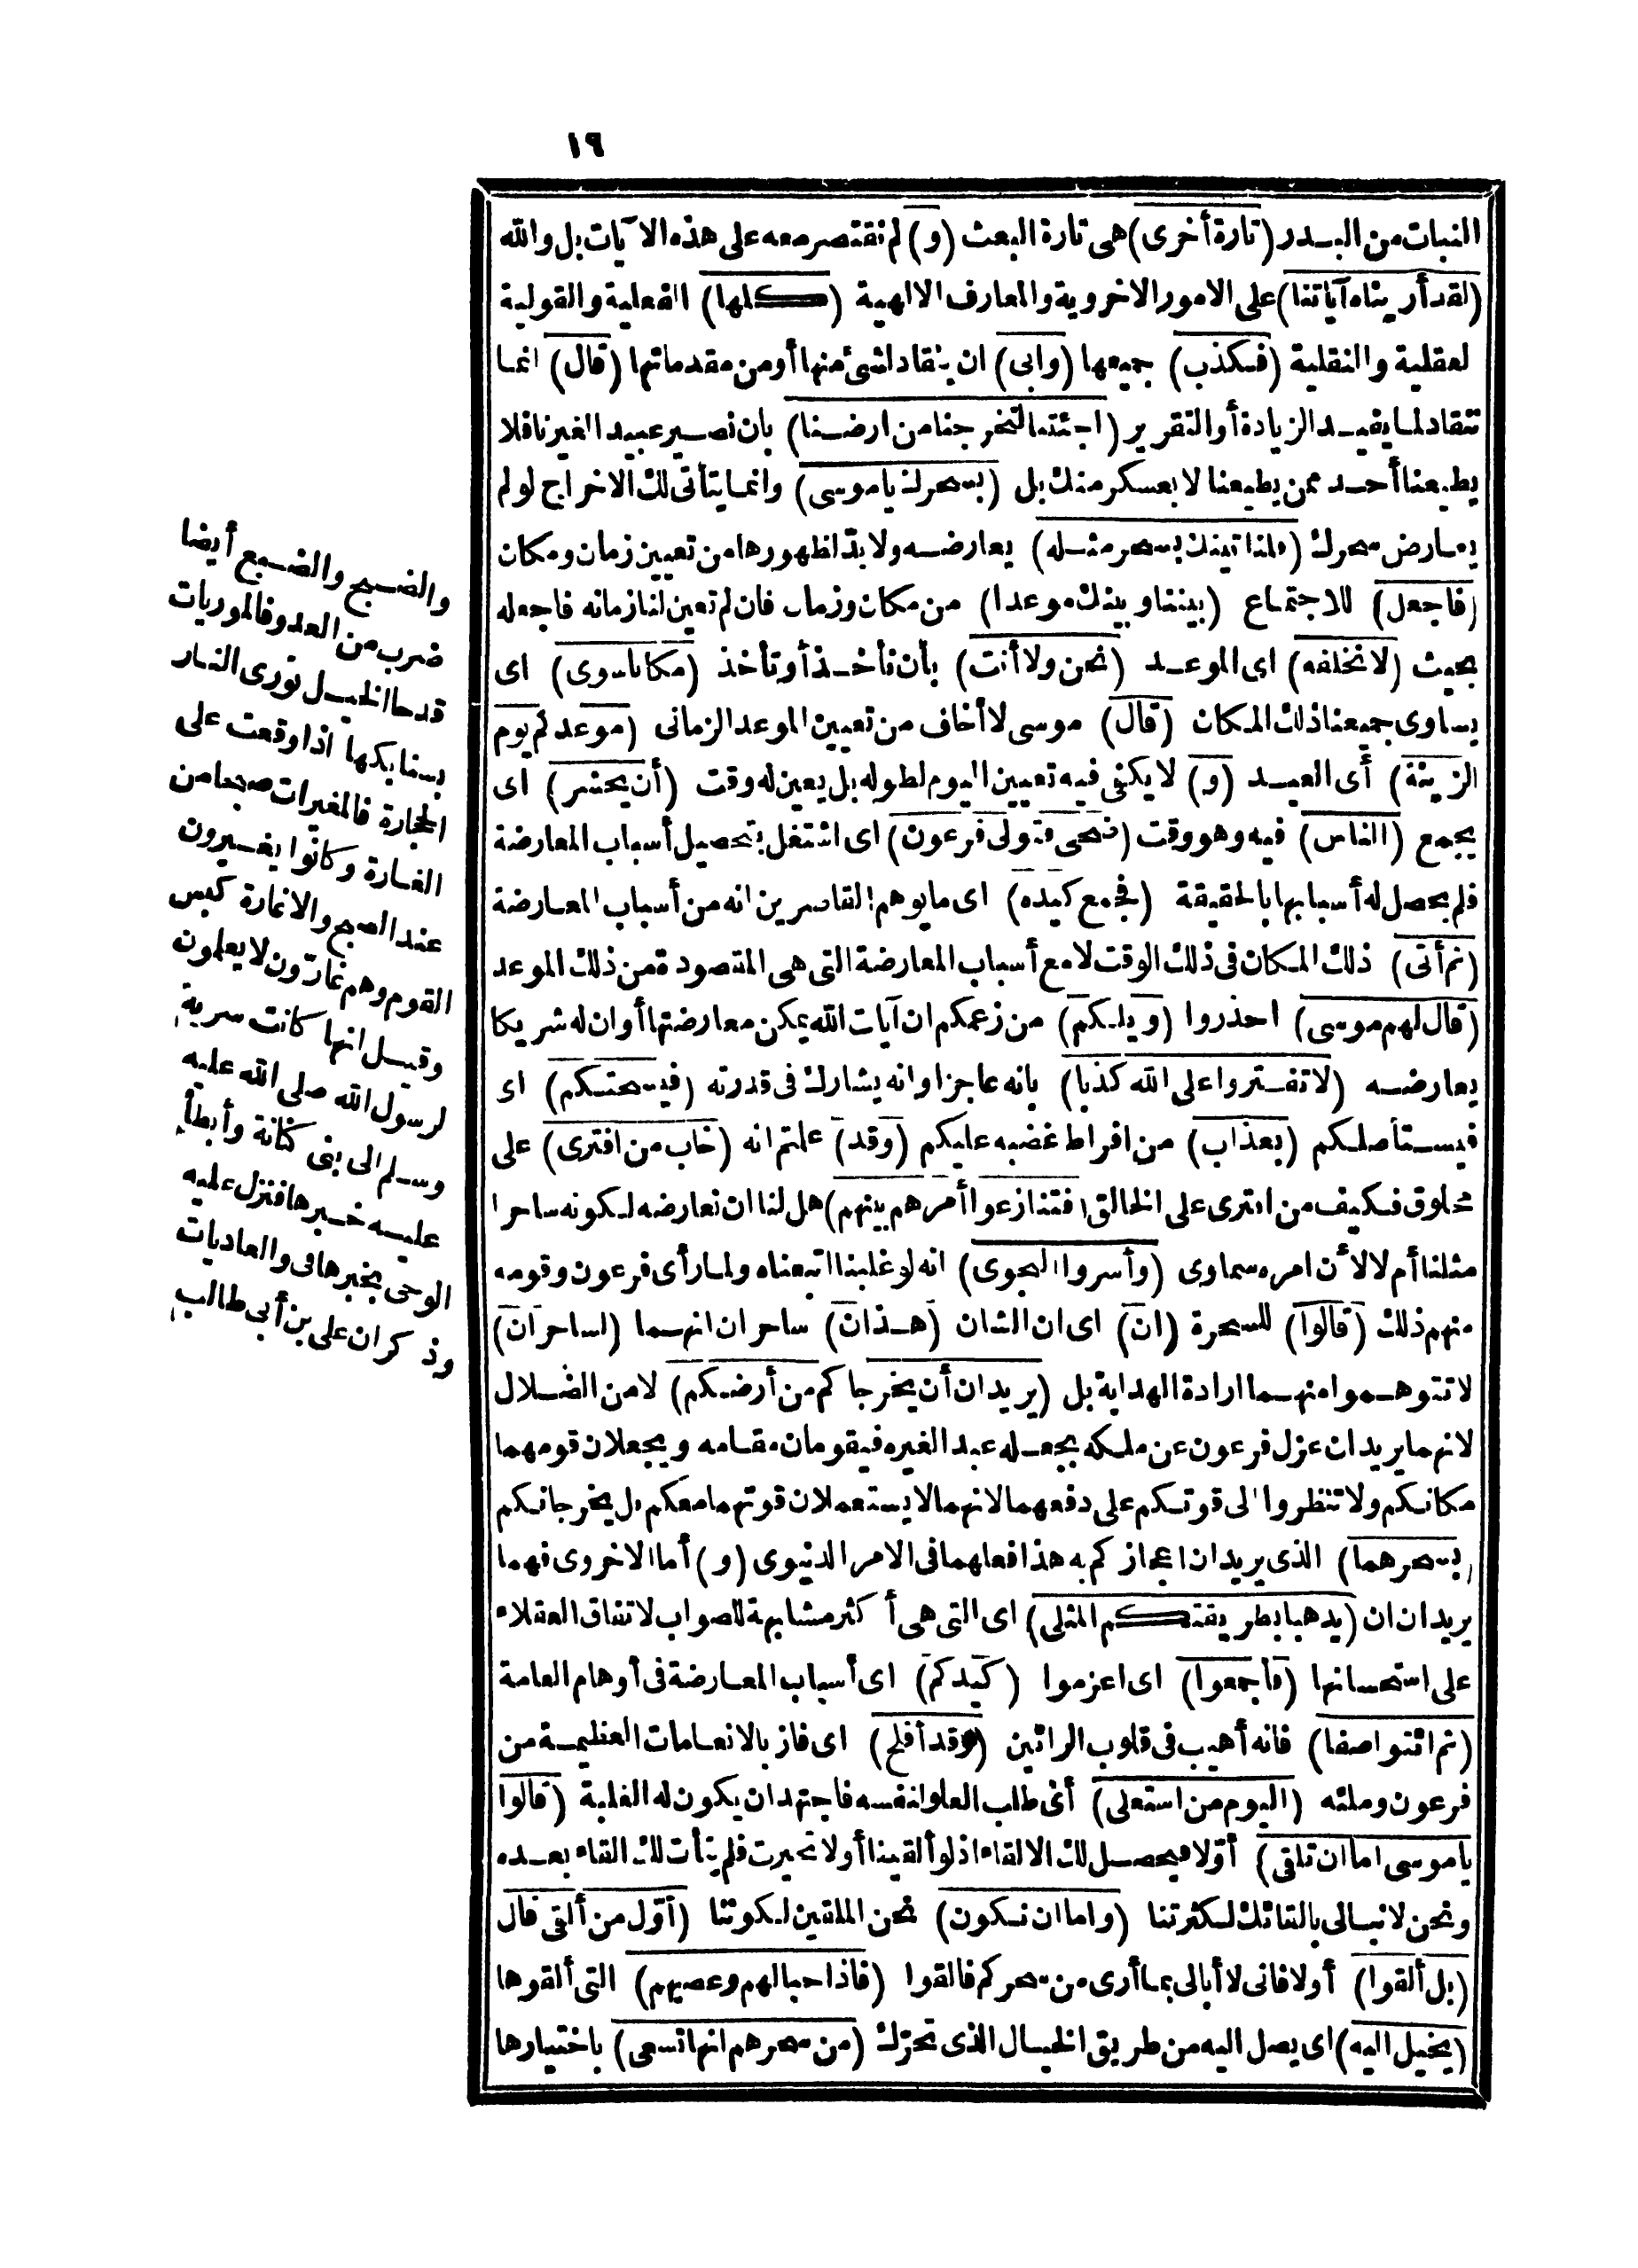 ١٩
النبات من البذر (تارة أخرى) هى تارة البعث (و) لم نقتصر معه على هذه الآيات بل والله
(لقد أريناه آياتنا) على الامور الاخروية والمعارف الالهية (كلها) الفعلية والقولية
لعقلية والنقلية (فكذب) جميعها (وابى) ان ينقاد لشئ منها أو من مقدماتها (قال) انما
ننقاد لما يفيد الزيادة أو التقرير (اجئتنا لتخرجنا من ارضنا) بان نصير عبيد الغيرنا فلا
يطيعنا أحد ممن يطيعنا لا بعسكر منك بل (بسحرك ياموسى) وانما يتأتى لك الاخراج لو لم
يعارض سحرك (فلنأتينك بسحر مثله) يعارضه ولا بدّ لظهورها من تعيين زمان ومكان
(فاجعل) للاجتماع (بيننا وبينك موعدا) من مكان وزمان فان لم تعين لنا زمانه فاجعله
بحيث (لا نخلفه) اى الموعد (نحن ولا أنت) بأن نأخذ أو تأخذ (مكانا سوى) اى
يساوى جميعنا ذلك المكان (قال) موسى لا أخاف من تعيين الموعد الزمانى (موعدكم يوم
الزينة) أى العيد (و) لا يكفى فيه تعيين اليوم لطوله بل يعين له وقت (أن يحشر) اى
يجمع (الناس) فيه وهو وقت (ضحى فتولى فرعون) اى اشتغل بتحصيل أسباب المعارضة
فلم يحصل له أسبابها بالحقيقة (فجمع كيده) اى ما يوهم القاصرين انه من أسباب المعارضة
(ثم أتى) ذلك المكان فى ذلك الوقت لا مع أسباب المعارضة التى هى المقصودة من ذلك الموعد
(قال لهم موسى) احذروا (ويلكم) من زعمكم ان آيات الله يمكن معارضتها أو ان له شريكا
يعارضه (لا تفتروا على الله كذبا) بانه عاجز او انه يشارك فى قدرته (فيسحتكم) اى
فيستأصلكم (بعذاب) من افراط غضبه عليكم (وقد) علمتم انه (خاب من افترى) على
مخلوق فكيف من افترى على الخالق (فتنازعوا أمرهم بينهم) هل لنا ان نعارضه لكونه ساحرا
مثلنا أم لا لأن امره سماوى (وأسروا النجوى) انه لو غلبنا اتبعناه ولما رأى فرعون وقومه
منهم ذلك (قالوا) للسحرة (ان) اى ان الشان (هذان) ساحران انهما (لساحران)
لا تتوهموا منهما ارادة الهداية بل (يريدان أن يخرجاكم من أرضكم) لا من الضلال
لانهما يريدان عزل فرعون عن ملكه بجعله عبد الغيره فيقومان مقامه ويجعلان قومهما
مكانكم ولا تنظروا الى قوتكم على دفعهما لانهما لا يستعملان قوتهما معكم بل يخرجانكم
(بسحرهما) الذى يريدان اعجازكم به هذا فعلهما فى الامر الدنيوى (و) أما الاخروى فهما
يريدان ان (يذهبا بطريقتكم المثلى) اى التى هى أكثر مشابهة للصواب لاتفاق العقلاء
على استحسانها (فأجمعوا) اى اعزموا (كيدكم) اى أسباب المعارضة فى أوهام العامة
(ثم ائتوا صفا) فانه أهيب فى قلوب الرائين (وقد أفلح) اى فاز بالانعامات العظيمة من
فرعون وملئه (اليوم من استعلى) أى طلب العلو لنفسه فاجتهد ان يكون له الغلبة (قالوا
ياموسى اما ان تلقى) أوّلا فيحصل لك الالقاء اذ لو ألقينا أولا تحيرت فلم يتأت لك القاء بعده
ونحن لا نبالى بالقائك لكثرتنا (واما ان نكون) نحن الملقين لكوننا (أوّل من ألقى قال
(بل ألقوا) أولا فانى لا أبالى بما أرى من سحركم فالقوا (فاذا حبالهم وعصيهم) التى ألقوها
(يخيل اليه) اى يصل اليه من طريق الخيال الذى تحرّك (من سحرهم انها تسعى) باختيارها
والضبح والضبع أيضا
ضرب من العدو فالموريات
قدحا الخيل تورى النار
بسنابكها اذا وقعت على
الحجارة فالمغيرات صبحا من
الغارة وكانوا يغيرون
عند الصبح والاغارة كبس
القوم وهم غارّون لا يعلمون
وقيل انها كانت سرية
لرسول الله صلى الله عليه
وسلم الى بنى كنانة وأبطأ
عليه خبرها فنزل عليه
الوحى بخبرها فى والعاديات
وذكر ان على بن أبى طالب